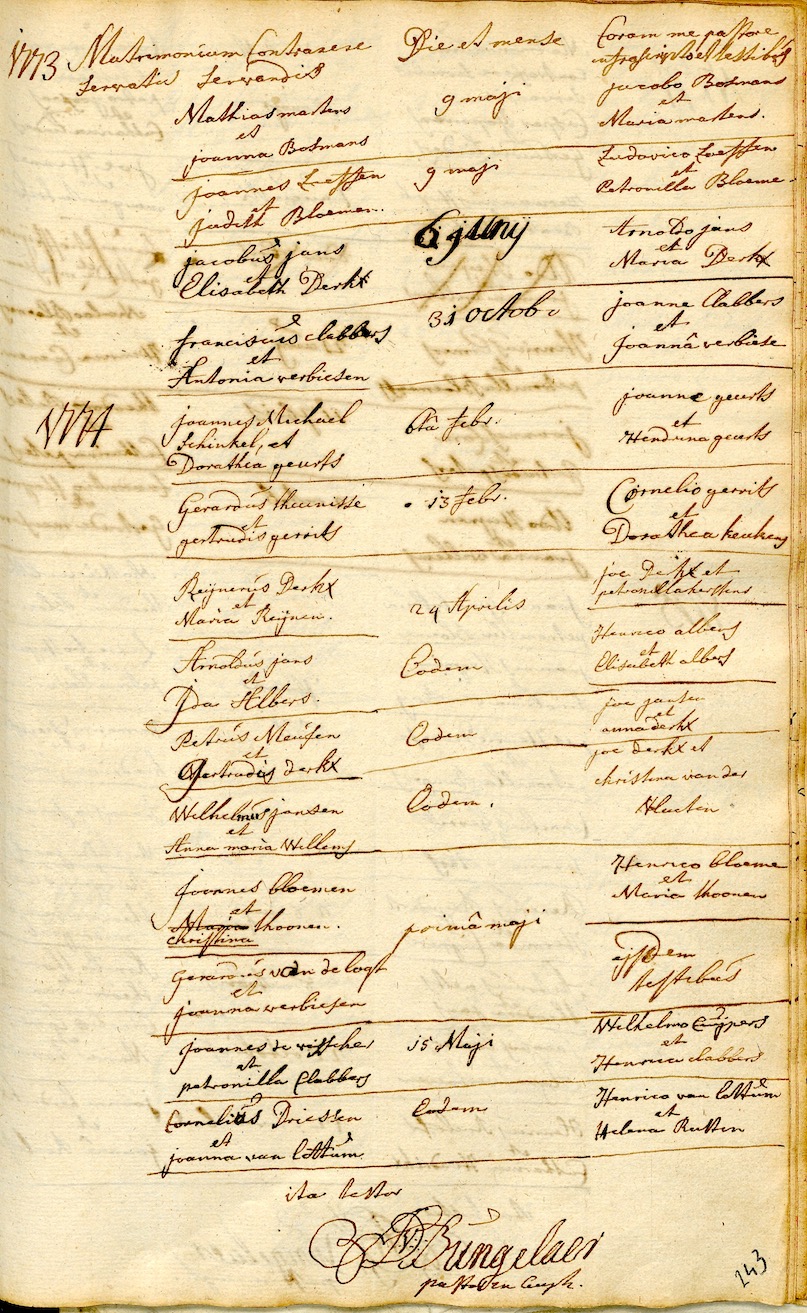 1773 Matrimonium Contraxere Die et mense Coram me pastore
servatis servandis infrascripto et testibus
Mathias martens 9 maji jacobo Bosmans
et et
joanna Bosmans Maria martens.
joannes Loeffen 9 maji Ludovico Loeffen
et et
judith Bloemen. Petronilla Bloeme
jacobus jans 6 junij Arnoldo jans
et et
Elisabeth Derkx Maria Derkx
franciscus clabbers 31 octob joanne Clabbers
et et
Antonia verbiesen joannâ verbiese
1774 joannes Michael 6tâ febr. joanne geurts
Schinkel, et et
Dorathea geurts Hendrina geurts
Gerardus theunisse 13 febr. Cornelio gerrits
et et
gertrudis gerrits Dorathea keukens
Reijnerus Derkx 24 Aprilis joe Derkx et
et petronilla
Maria Reijnen.
Arnoldus jans Eodem Henrico albers
et et
Ida Albers. Elisabeth albers
Petrus Meusen Eodem joe jansen
et et
Gertrudis derkx anna derkx
Wilhelmus jansen Eodem. joe derkx et
et christina van der
Anna maria Willems Vleuten
joannes bloemen primâ maji Henrico bloeme
et et
Maria thoonen. Maria thoonen
christina
Gerardus van de logt ijsdem
et testibus
joanna verbiesen
joannes de visscher 15 Maji Wilhelmo Cuijpers
et et
petronilla Clabbers Henrica clabbers
Cornelius Driessen Eodem Henrico van lottum
et et
joanna van lottum Helena Rutten
ita testor
Bungelaer
pastor in Cuyk.
243